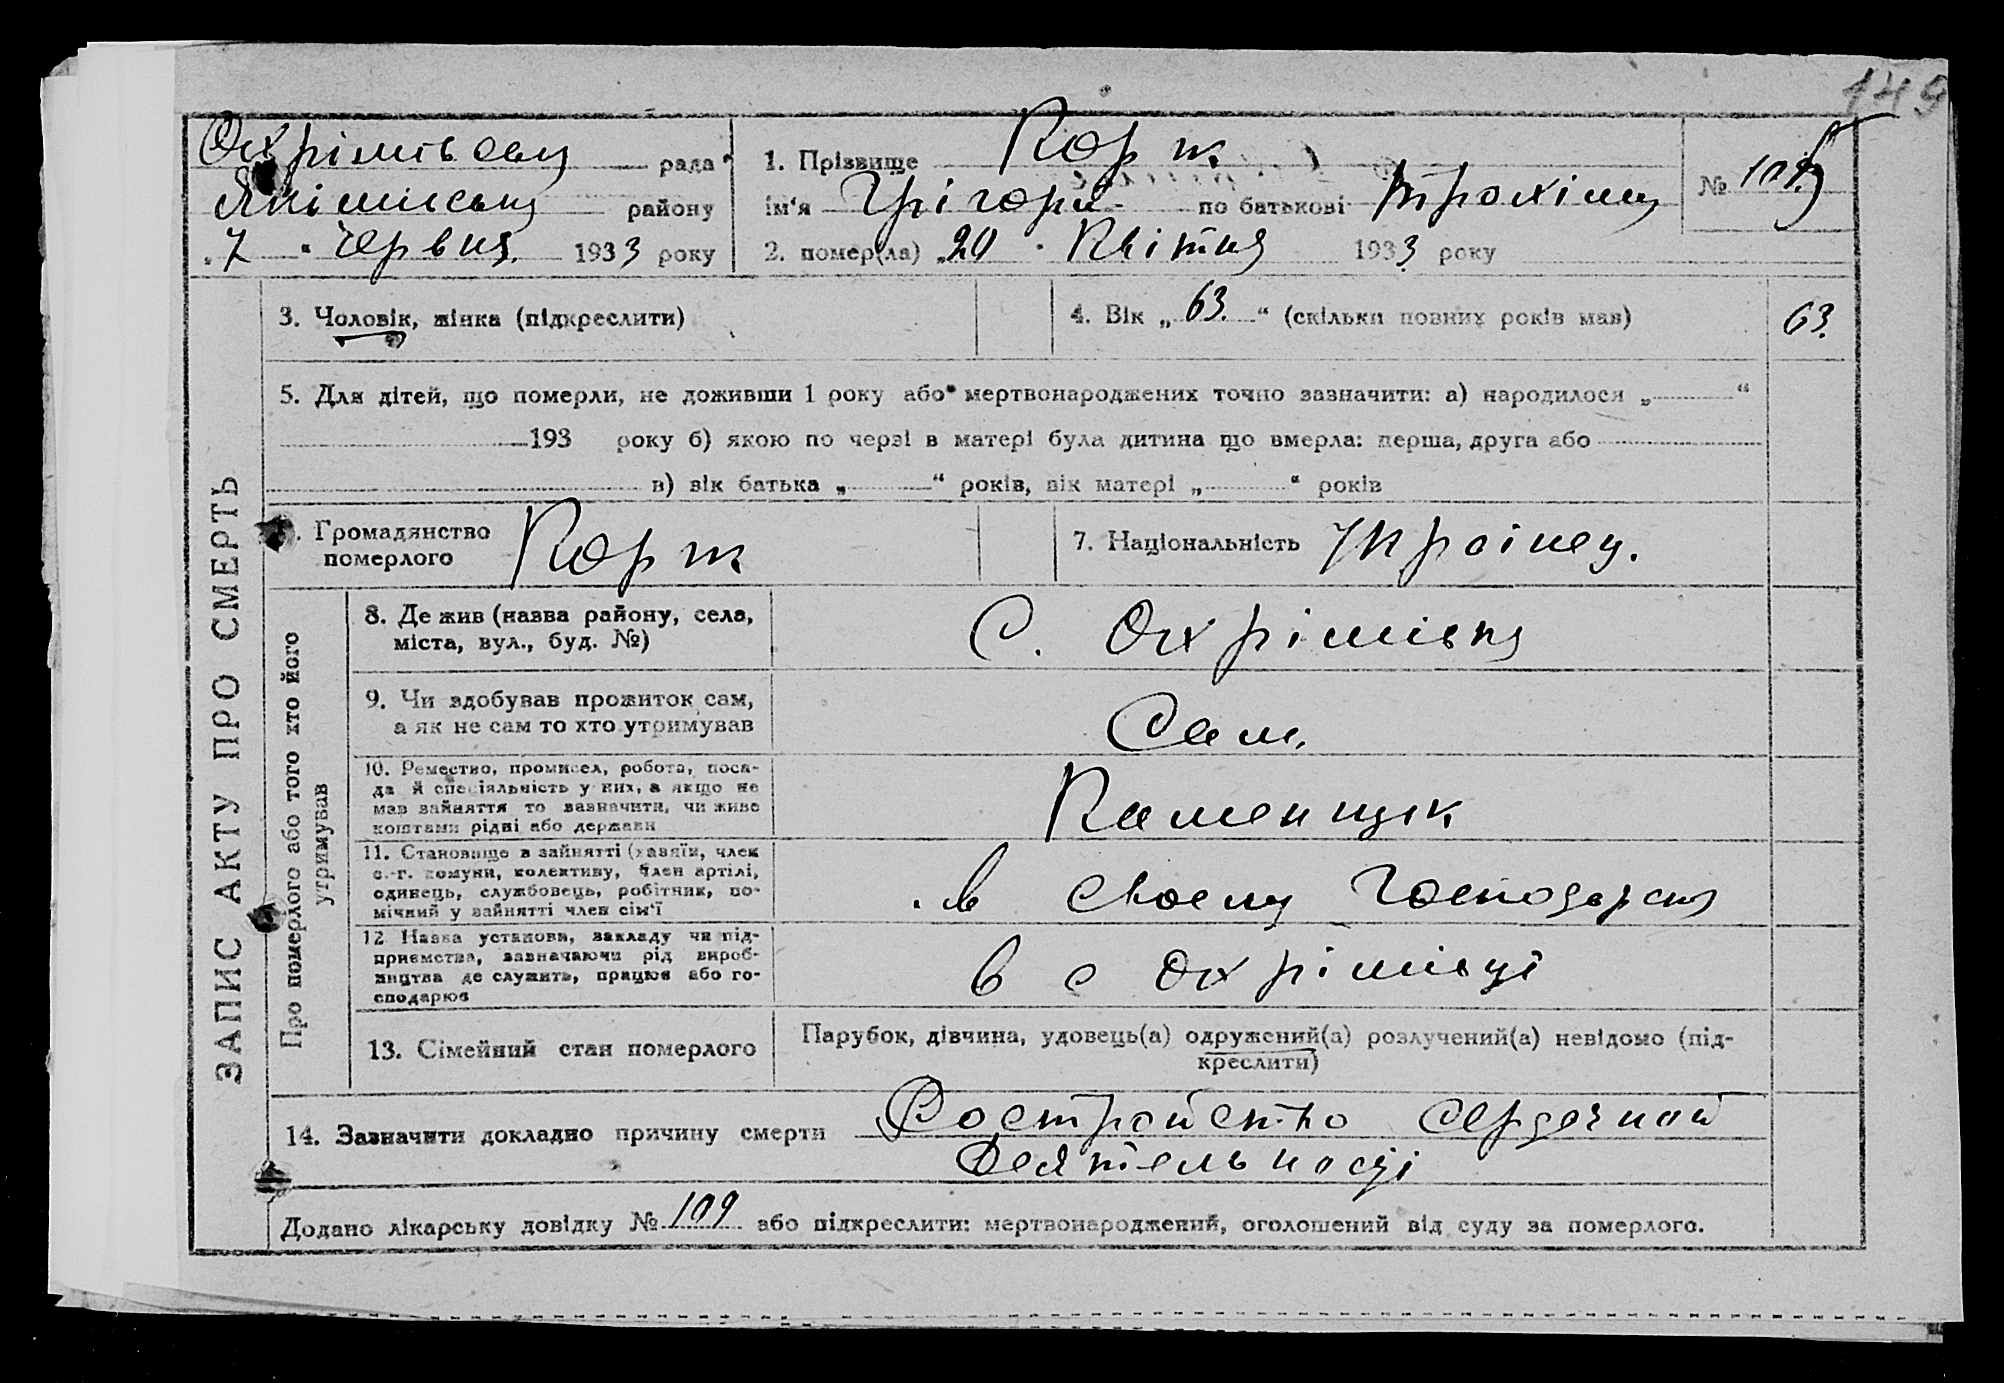 149
Охрімівська рада
Якімівська району
„7“ Червня 1933 року
1. Прізвище Корж
ім'я Грігорій по батькові Трохімов
2. помер(ла) „20“ Квітня 1933 року
№ 109
3. Чоловік, жінка (підкреслити)
4. Вік „63.“ (скільки повних років мав)
63.
5. Для дітей, що померли, не доживши 1 року або мертвонароджених точно зазначити: а) народилося „ “
193 року б) якою по черзі в матері була дитина що вмерла: перша, друга або
в) вік батька „ “ років, вік матері „ “ років
Громадянство
померлого Корж
7. Національність Українец.
ЗАПИС АКТУ ПРО СМЕРТЬ
Про померлого або того хто його
утримував
8. Де жив (назва району, села,
міста, вул., буд. №)
С. Охрімівка
9. Чи здобував прожиток сам,
а як не сам то хто утримував
Сам.
10. Ремество, промисел, робота, поса-
да й спеціяльність у них, а якщо не
мав зайняття то зазначити, чи живе
коштами рідні або держави
Каменщик
11. Становище в зайнятті (хазяїн, член
с.-г. комуни, колективу, член артілі,
одинець, службовець, робітник, по-
мічний у зайнятті член сім'ї
в своєму Господарстві
12 Назва установи, закладу чи під-
приємства, зазначаючи рід вироб-
ництва де служить, працює або го-
сподарює
в с Охрімівці
13. Сімейний стан померлого
Парубок, дівчина, удовець(а) одружений(а) розлучений(а) невідомо (під-
креслити)
14. Зазначити докладно причину смерти Ростройство сердечной
Деятельності
Додано лікарську довідку № 109 або підкреслити: мертвонароджений, оголошений від суду за померлого.